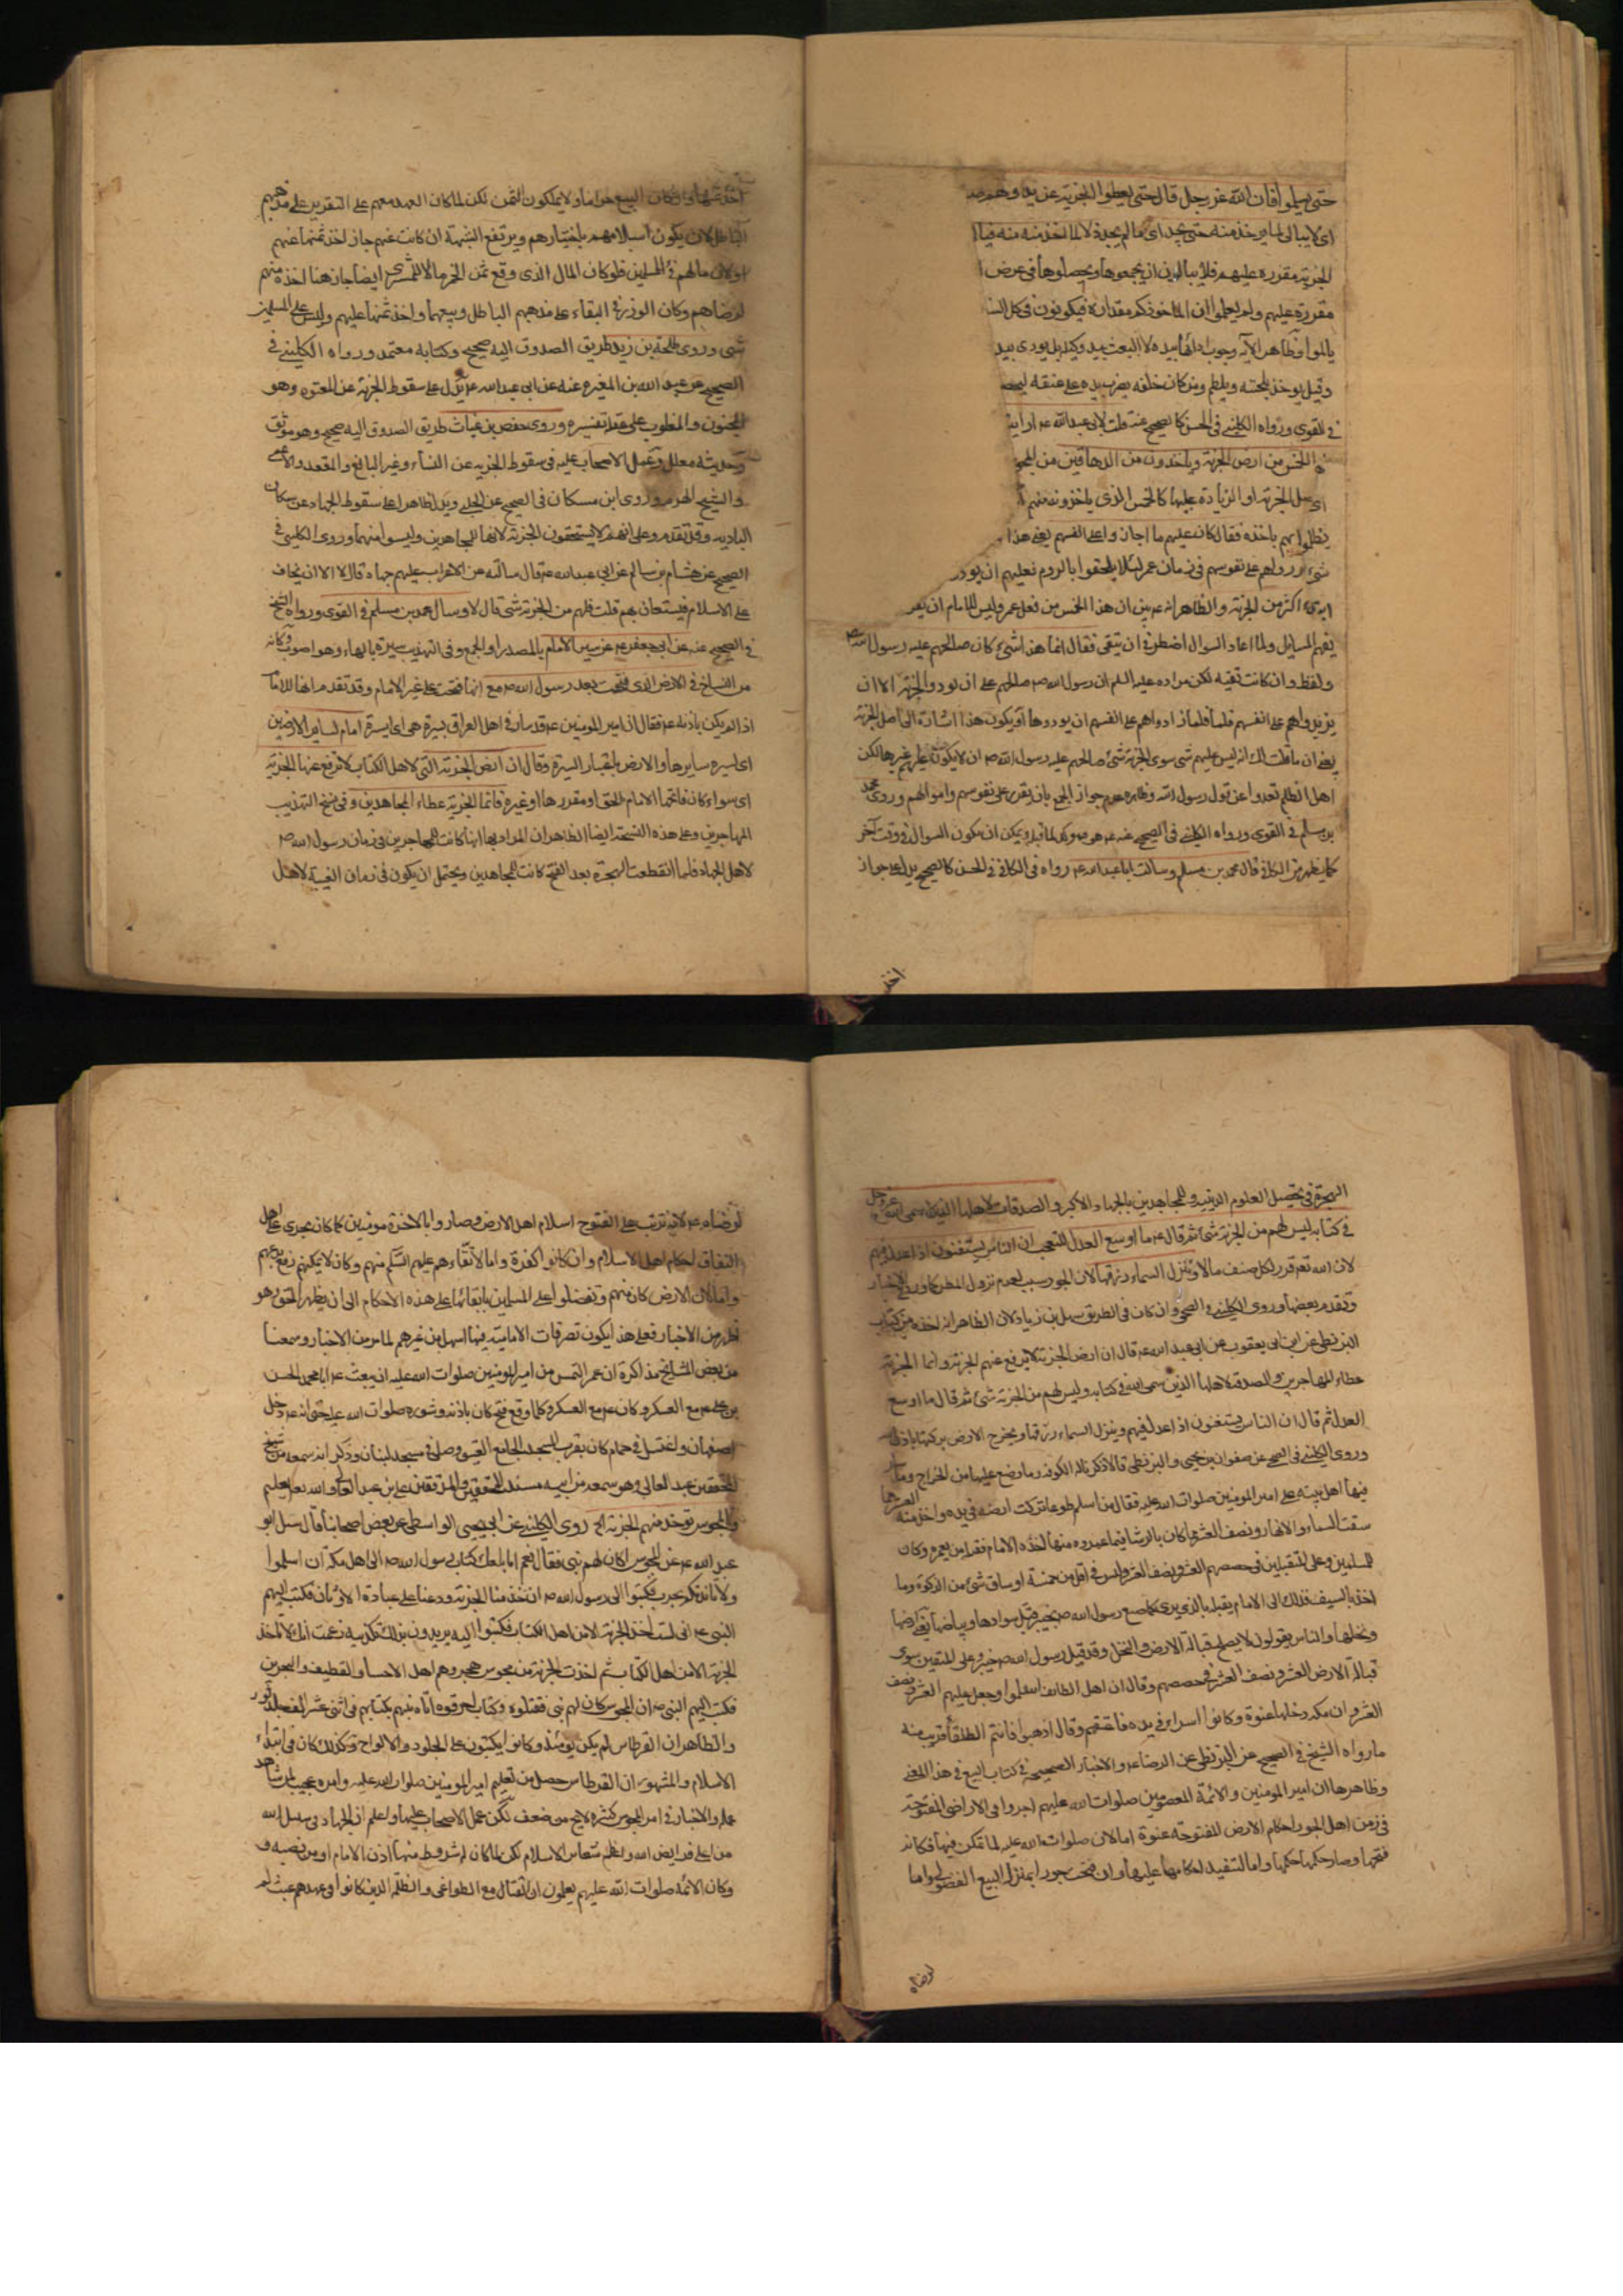 حتى يسلموا فان الله عز وجل قال حتى يعطوا الجزية عن يد وهم صـ
اى لا يبالى لما يوخذ منه حتى يجد اى ما لم يجد ذلا لما اخذ منه فيا
الجزية مقررة عليهم فلا يبالون ان يجمعوها ويحصلوها فى عرض ا
مقررة عليهم ولم يعلموا ان الماخوذ كم مقداره فيكونون فى كل السـ
يالموا وظاهر الآية وجوب ادائها بيده لا البعث بيد وكيله بل يودى بيد
وقيل يوخذ بلحيته ويلطم ومن كان خلفه يضرب بيده على عنقه
فى القوى ورواه الكلينى فى الحسن كالصحيح عنه قلت لابى عبد الله ع ارايت
الخمس من ارض الجزية وياخذون من الدهاقين من
اى بدل الجزية او الزيادة عليها كالخمس الذى ياخذونه منهم
باخذه فقال كان عليهم ما اجازوا على انفسهم يعنى هذا
شىء على نفوسهم فى زمان عمر لئلا يلحقوا بالروم فعليهم ان يودو
اكثر من الجزية والظاهر انه ع بين ان هذا الخمس من فعل عمر وليس للامام ان
يفهم المسايل ولما اعاد السوال اضطر فى ان يتقى فقال انما هذا شىء كان صالحهم عليه رسول الله ص
ولفظ وان كانت تقيه لكن مراده عليه السلم ان رسول الله ص صالحهم على ان يودوا الجزية الا ان
يزيد واهم على انفسهم فلما زادواهم على انفسهم ان يودوها او يكون هذا اشارة الى اصل الجزية
يعنى ان ما قلت لك انه ليس عليهم شى سوى الجزية شىء صالحهم عليه رسول الله ص ان لا يكون عليهم غيرها لكن
اهل الظلم تعدوا عن قول رسول الله وظاهره عدم جواز الجمع بان يقرر على نفوسهم واموالهم وروى محمد
بن مسلم فى القوى ورواه الكلينى فى الصحيح عنه ع هو موكد لما قبله ويمكن ان يكون السوال فى وقت آخر
كما يظهر من الكافى قال محمد بن مسلم وسالت ابا عبد الله ع رواه فى الكافى فى الحسن كالصحيح يدل على جواز
اخذ
اخذ ثمنها وان كان البيع حراما ولا يملكون الثمن لكن لما كان العهد معهم على التقرير على مذهبهم
الباطل لان يكون اسلامهم باختيارهم ويرتفع الشبهة ان كانت عنهم جاز اخذ ثمنها عنهم
او لان مالهم فئ للمسلمين فلو كان المال الذى وقع ثمن الخمر مالا للمشترى ايضا جاز هنا اخذه منهم
لرضاهم وكان الوزر فى البقاء على مذهبهم الباطل وبيعها واخذ ثمنها عليهم وليس على المسلمين
شى وروى طلحة بن زيد طريق الصدوق اليه صحيح وكتابه معتمد ورواه الكلينى فى
الصحيح عن عبد الله بن المغيرة عنه عن ابى عبد الله ع يدل على سقوط الجزية عن المعتوه وهو
المجنون والمغلوب على عقله تفسيره وروى حفص بن غياث طريق الصدوق اليه صحيح وهو موثق
وحديثه معلل وعمل الاصحاب عليه فى سقوط الجزيه عن النساء وغير البالغ والمقعد والاعمى
والشيخ الهرم وروى ابن مسكان فى الصحيح عن الحلبى ويدل ظاهرا على سقوط الجهاد عن سكان
الباديه وقد تقدم وعلى انهم لا يستحقون الجزية لانها للمجاهدين وليسوا منهما وروى الكلينى فى
الصحيح عن هشام بن سالم عن ابى عبد الله ع قال سالته عن الاعراب عليهم جهاد قال لا الا ان يخاف
على الاسلام فيستعان بهم قلت فلهم من الجزية شئ قال لا وسال محمد بن مسلم فى القوى ورواه الشيخ
فى الصحيح عنه عن ابى جعفر ع عن سير الامام بالمصدر او الجمع وفى التهذيب سيرة بالهاء وهو اصوب وكانه
من النساخ فى الارض التى فتحت بعد رسول الله ص مع انها فتحت على غير الامام وقد تقدم انها للامام
اذا لم يكن باذنه ع فقال ان امير المومنين ع قد سار فى اهل العراق بسيرة هى اى السيرة امام لساير الارضين
اى لسيره سايرها والارض باعتبار السيرة وقال ان ارض الجزية التى لاهل الكتاب لا ترفع عنها الجزية
اى سواء كان فاتحها الامام الحق او مقررها او غيره فانما الجزية عطاء المجاهدين وفى نسخ التهذيب
المهاجرين وعلى هذه النسخة ايضا الظاهر ان المراد بها انها كانت للمهاجرين فى زمان رسول الله ص
لاهل الجهاد فلما انقطعت الهجرة بعد الفتح كانت للمجاهدين ويحتمل ان يكون فى زمان الغيبة لاهل
الهجرة فى تحصيل العلوم الدينيه وللمجاهدين بالجهاد الاكبر والصدقات لاهلها الذين سمى الله عز وجل
فى كتابه ليس لهم من الجزية شئ ثم قال ع ما اوسع العدل للتعجب ان الناس يستغنون اذا عدل فيهم
لان الله تعالى قدر لكل صنف مالا وتنزل السماء رزقها لان الجور سبب لعدم نزول المطر كما ورد فى الاخبار
وتقدم بعضها وروى الكلينى فى الصحيح وان كان فى الطريق سهل بن زياد لان الظاهر انه اخذه من كتاب
البزنطى عن ابن ابى يعقوب عن ابى عبد الله ع قال ان ارض الجزية لا يرفع عنهم الجزية وانما الجزية
عطاء المهاجرين والصدقة لاهلها الذين سمى الله فى كتابه وليس لهم من الجزية شئ ثم قال ما اوسع
العدل ثم قال ان الناس يستغنون اذا عدل فيهم وينزل السماء رزقها ويخرج الارض بركتها باذن الله
وروى الكلينى فى الصحيح عن صفوان بن يحيى والبزنطى قالا ذكرنا له الكوفة وما وضع عليها من الخراج وما سار
فيها اهل بيته على امير المومنين صلوات الله عليه فقال من اسلم طوعا تركت ارضه فى يده واخذ منه العشر مما
سقت السماء والانهار ونصف العشر مما كان بالرشا فيما عمروه منها اخذه الامام فقبله من يعمره وكان
للمسلمين وعلى المتقبلين فى حصصهم العشر ونصف العشر وليس فى اقل من خمسة اوساق شئ من الزكوة وما
اخذ بالسيف فذلك الى الامام يقبله بالذى يرى كما صنع رسول الله ص بخيبر قبل سوادها وبياضها يعنى ارضها
ونخلها والناس يقولون لا يصلح قبالة الارض والنخل وقد قبل رسول الله ص خيبر وعلى المتقبلين سوى
قبالة الارض العشر ونصف العشر فى حصصهم وقال ان اهل الطائف اسلموا وجعل عليهم العشر ونصف
العشر وان مكه دخلها عنوة وكانوا اسراء فى يده فاعتقهم وقال اذهبوا فانتم الطلقاء قريب منه
ما رواه الشيخ فى الصحيح عن البزنطى عن الرضا ع والاخبار الصحيحة فى كتاب البيع فى هذا المعنى
وظاهرها ان امير المومنين والائمة المعصومين صلوات الله عليهم اجروا فى الاراضى المفتوحة
فى زمن اهل الجور احكام الارض المفتوحه عنوة اما لانه صلوات الله عليه لما تمكن فيها فكانه
فتحها وصار حكمها حكمها واما لتنفيذ احكامها عليها وان فتحت جورا بمنزلة البيع الفضولى واما
لرضاه
لرضاه ع لانه ترتب على الفتوح اسلام اهل الارض وصاروا بالاخرة مومنين كما كان يجرى على اهل
النفاق احكام اهل الاسلام وان كانوا كفرة واما لاتقاءهم عليهم السلم منهم وكان لا يمكنهم رفع يدهم
واما لان الارض كان منهم وتفضلوا على المسلمين بابقائها على هذه الاحكام الى ان يظهر الحق وهو
اظهر من الاخبار فعلى هذا يكون تصرفات الامامية فيها اسهل من غيرهم لما مر من الاخبار وسمعنا
من بعض المشايخ مذاكرة ان عمر التمس من امير المومنين صلوات الله عليه ان يبعث ع ابا محمد الحسن
بن على ع مع العسكر وكان ع مع العسكر وكلما وقع فتح كان باذنه وشوره صلوات الله عليه حتى انه ع دخل
اصفهان واغتسل فى حمام كان بقرب المسجد الجامع العتيق وصلى فى مسجد لبنان وذكر انه سمعه من شيخ
المحققين عبد العالى وهو سمعه من ابيه مسند المحققين والمدققين على بن عبد العالى والله تعالى يعلم
والمجوس توخذ منهم الجزية الخ روى الكلينى عن ابى يحيى الواسطى عن بعض اصحابنا قال سئل ابو
عبد الله ع عن المجوس اكان لهم نبى فقال نعم اما بلغك كتاب رسول الله ص الى اهل مكة ان اسلموا
ولا نابذتكم بحرب فكتبوا الى رسول الله ص ان خذ منا الجزية ودعنا على عبادة الاوثان فكتب اليهم
النبى ع انى لست اخذ الجزية الا من اهل الكتاب فكتبوا اليه يريدون بذلك تكذيبه زعمت انك لا تاخذ
الجزية الا من اهل الكتاب ثم اخذت الجزية من مجوس هجر وهم اهل الاحسا والقطيف والبحرين
فكتب اليهم النبى ص ان المجوس كان لهم نبى فقتلوه وكتاب احرقوه اتاهم نبيهم بكتابهم فى اثنى عشر الف جلد ثور
والظاهر ان القرطاس لم يكن يومئذ وكانوا يكتبون على الجلود والالواح وكذلك كان فى ابتداء
الاسلام والمشهور ان القرطاس حصل من تعليم امير المومنين صلوات الله عليه وامره عجيب لمن شاهد
عمله والاخبار فى امر المجوس كثيره لا يخ من ضعف لكن عمل الاصحاب عليها واعلم ان الجهاد فى سبيل الله
من اعلى فرايض الله واعظم شعاير الاسلام لكن لما كان المشروط منها اذن الامام او من نصبه و
وكان الائمة صلوات الله عليهم يعلمون ان القتال مع الطواغى والظلمه الذين كانوا فى عهدهم عبث لم